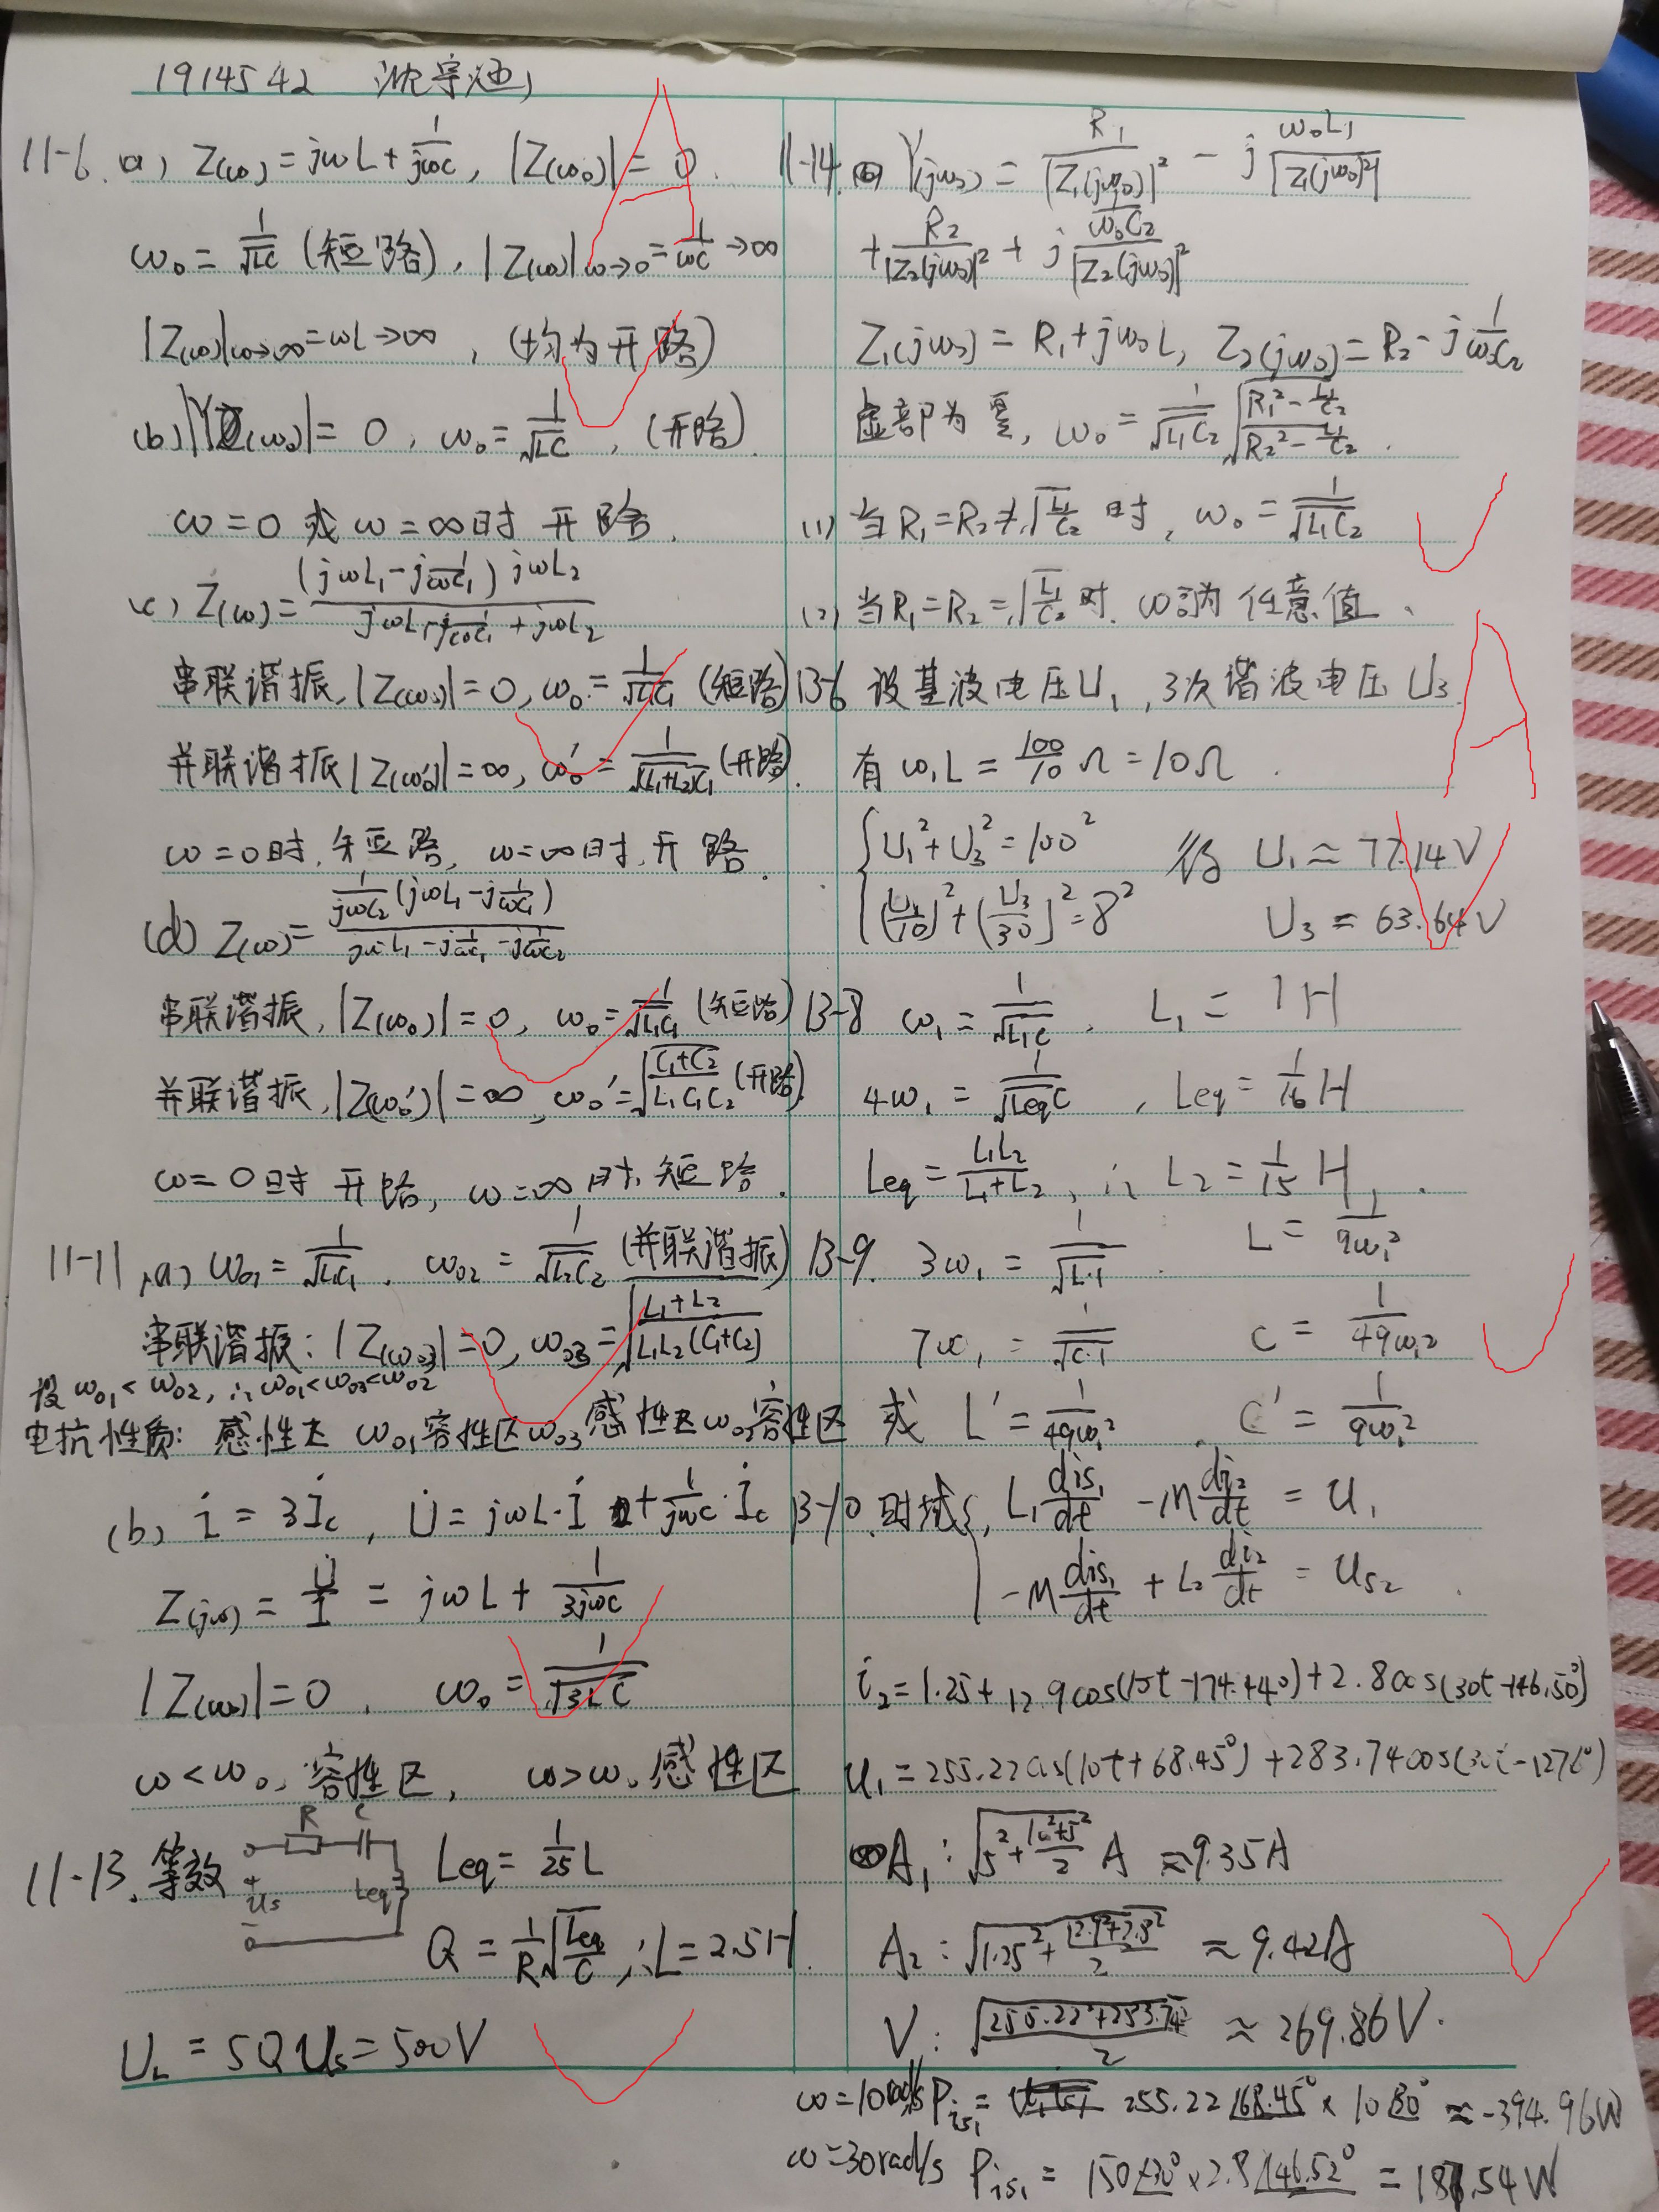 1914542
11-6. (a) Z(ω) = jωL + 1/(jωC), |Z(ω₀)| = 0.
ω₀ = 1/√(LC) (短路), |Z(ω)|ω→0 = 1/(ωC) → ∞
|Z(ω)|ω→∞ = ωL → ∞, (均为开路)
(b) |Y(ω₀)| = 0, ω₀ = 1/√(LC), (开路).
ω = 0 或 ω = ∞时 开路.
(c) Z(ω) = (jωL₁ - j1/(ωC₁)) jωL₂ / (jωL₁ - j1/(ωC₁) + jωL₂)
串联谐振, |Z(ω₀)| = 0, ω₀ = 1/√(L₁C₁) (短路)
并联谐振 |Z(ω₀')| = ∞, ω₀' = 1/√((L₁+L₂)C₁) (开路).
ω = 0时, 短路, ω = ∞时, 开路.
(d) Z(ω) = 1/(jωC₂) (jωL₁ - j1/(ωC₁)) / (jωL₁ - j1/(ωC₁) - j1/(ωC₂))
串联谐振, |Z(ω₀)| = 0, ω₀ = 1/√(L₁C₁) (短路)
并联谐振, |Z(ω₀')| = ∞, ω₀' = √((C₁+C₂)/(L₁C₁C₂)) (开路).
ω = 0时 开路, ω = ∞时, 短路.
11-11. (a) ω₀₁ = 1/√(L₁C₁). ω₀₂ = 1/√(L₂C₂) (并联谐振)
串联谐振: |Z(ω₀₃)| = 0, ω₀₃ = √((L₁+L₂)/(L₁L₂(C₁+C₂)))
设 ω₀₁ < ω₀₂, ∴ ω₀₁ < ω₀₃ < ω₀₂
电抗性质: 感性区 ω₀₁ 容性区 ω₀₃ 感性区 ω₀₂ 容性区
(b) İ = 3İc, U̇ = jωL·İ + 1/(jωC)·İc
Z(jω) = U̇/İ = jωL + 1/(3jωC)
|Z(ω₀)| = 0, ω₀ = 1/√(3LC)
ω < ω₀, 容性区, ω > ω₀ 感性区
11-13. 等效 R C + Us - Leq Leq = 1/25 L
Q = 1/R √(Leq/C), ∴ L = 2.5H.
U_L = 5QUs = 500V
11-14. Y(jω₀) = R₁/|Z₁(jω₀)|² - j ω₀L₁/|Z₁(jω₀)²|
+ R₂/|Z₂(jω₀)|² + j (1/(ω₀C₂))/|Z₂(jω₀)|²
Z₁(jω₀) = R₁ + jω₀L, Z₂(jω₀) = R₂ - j1/(ω₀C₂)
虚部为零, ω₀ = 1/√(L₁C₂) √((R₁² - L₁/C₂)/(R₂² - L₁/C₂)).
(1) 当 R₁ = R₂ ≠ √(L₁/C₂) 时, ω₀ = 1/√(L₁C₂)
(2) 当 R₁ = R₂ = √(L₁/C₂) 时. ω可为 任意值.
A
13-6 设基波电压U₁, 3次谐波电压U₃.
有 ω₁L = 100/10 Ω = 10Ω.
{ U₁² + U₃² = 100² 得 U₁ ≈ 77.14V
(U₁/10)² + (U₃/30)² = 8² U₃ = 63.64V
A
13-8 ω₁ = 1/√(L₁C), L₁ = 1H
4ω₁ = 1/√(LeqC), Leq = 1/16 H
Leq = L₁L₂/(L₁+L₂), ∴ L₂ = 1/15 H.
13-9. 3ω₁ = 1/√(L·1). L = 1/(9ω₁²)
7ω₁ = 1/√(C·1) C = 1/(49ω₁²)
或 L' = 1/(49ω₁²). C' = 1/(9ω₁²)
13-10. 时域 { L₁ dis₁/dt - M di₂/dt = u₁
-M dis₁/dt + L₂ di₂/dt = us₂.
i₂ = 1.25 + 12.9cos(15t - 174.44°) + 2.8cos(30t - 146.50°)
u₁ = 255.22cos(10t + 68.45°) + 283.74cos(30t - 127.6°)
A₁: √(5² + (10²+5²)/2) A ≈ 9.35A
A₂: √(1.25² + (12.9²+2.8²)/2) ≈ 9.42A
V: √((255.22²+283.74²)/2) ≈ 269.86V.
ω = 10rad/s Pis₁ = 255.22∠68.45° × 10∠30° ≈ -394.96W
ω = 30rad/s Pis₁ = 150∠30° × 2.8∠146.52° = 181.54W